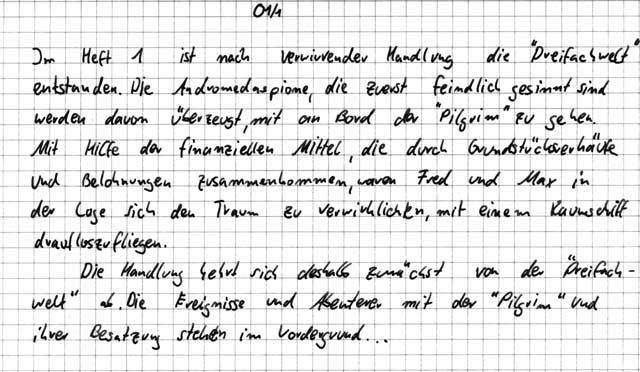 01/1
Im Heft 1 ist nach verwirrender Handlung die "Dreifachwelt"
entstanden. Die Andromedaspione, die zuerst feindlich gesinnt sind
werden davon überzeugt, mit an Bord der "Pilgrim" zu gehen.
Mit Hilfe der finanziellen Mittel, die durch Grundstücksverkäufe
und Belohnungen zusammenkommen, waren Fred und Max in
der Lage sich den Traum zu verwirklichen, mit einem Raumschiff
draufloszufliegen.
Die Handlung kehrt sich deshalb zunächst von der "Dreifach-
welt" ab. Die Ereignisse und Abenteuer mit der "Pilgrim" und
ihrer Besatzung stehen im Vordergrund...